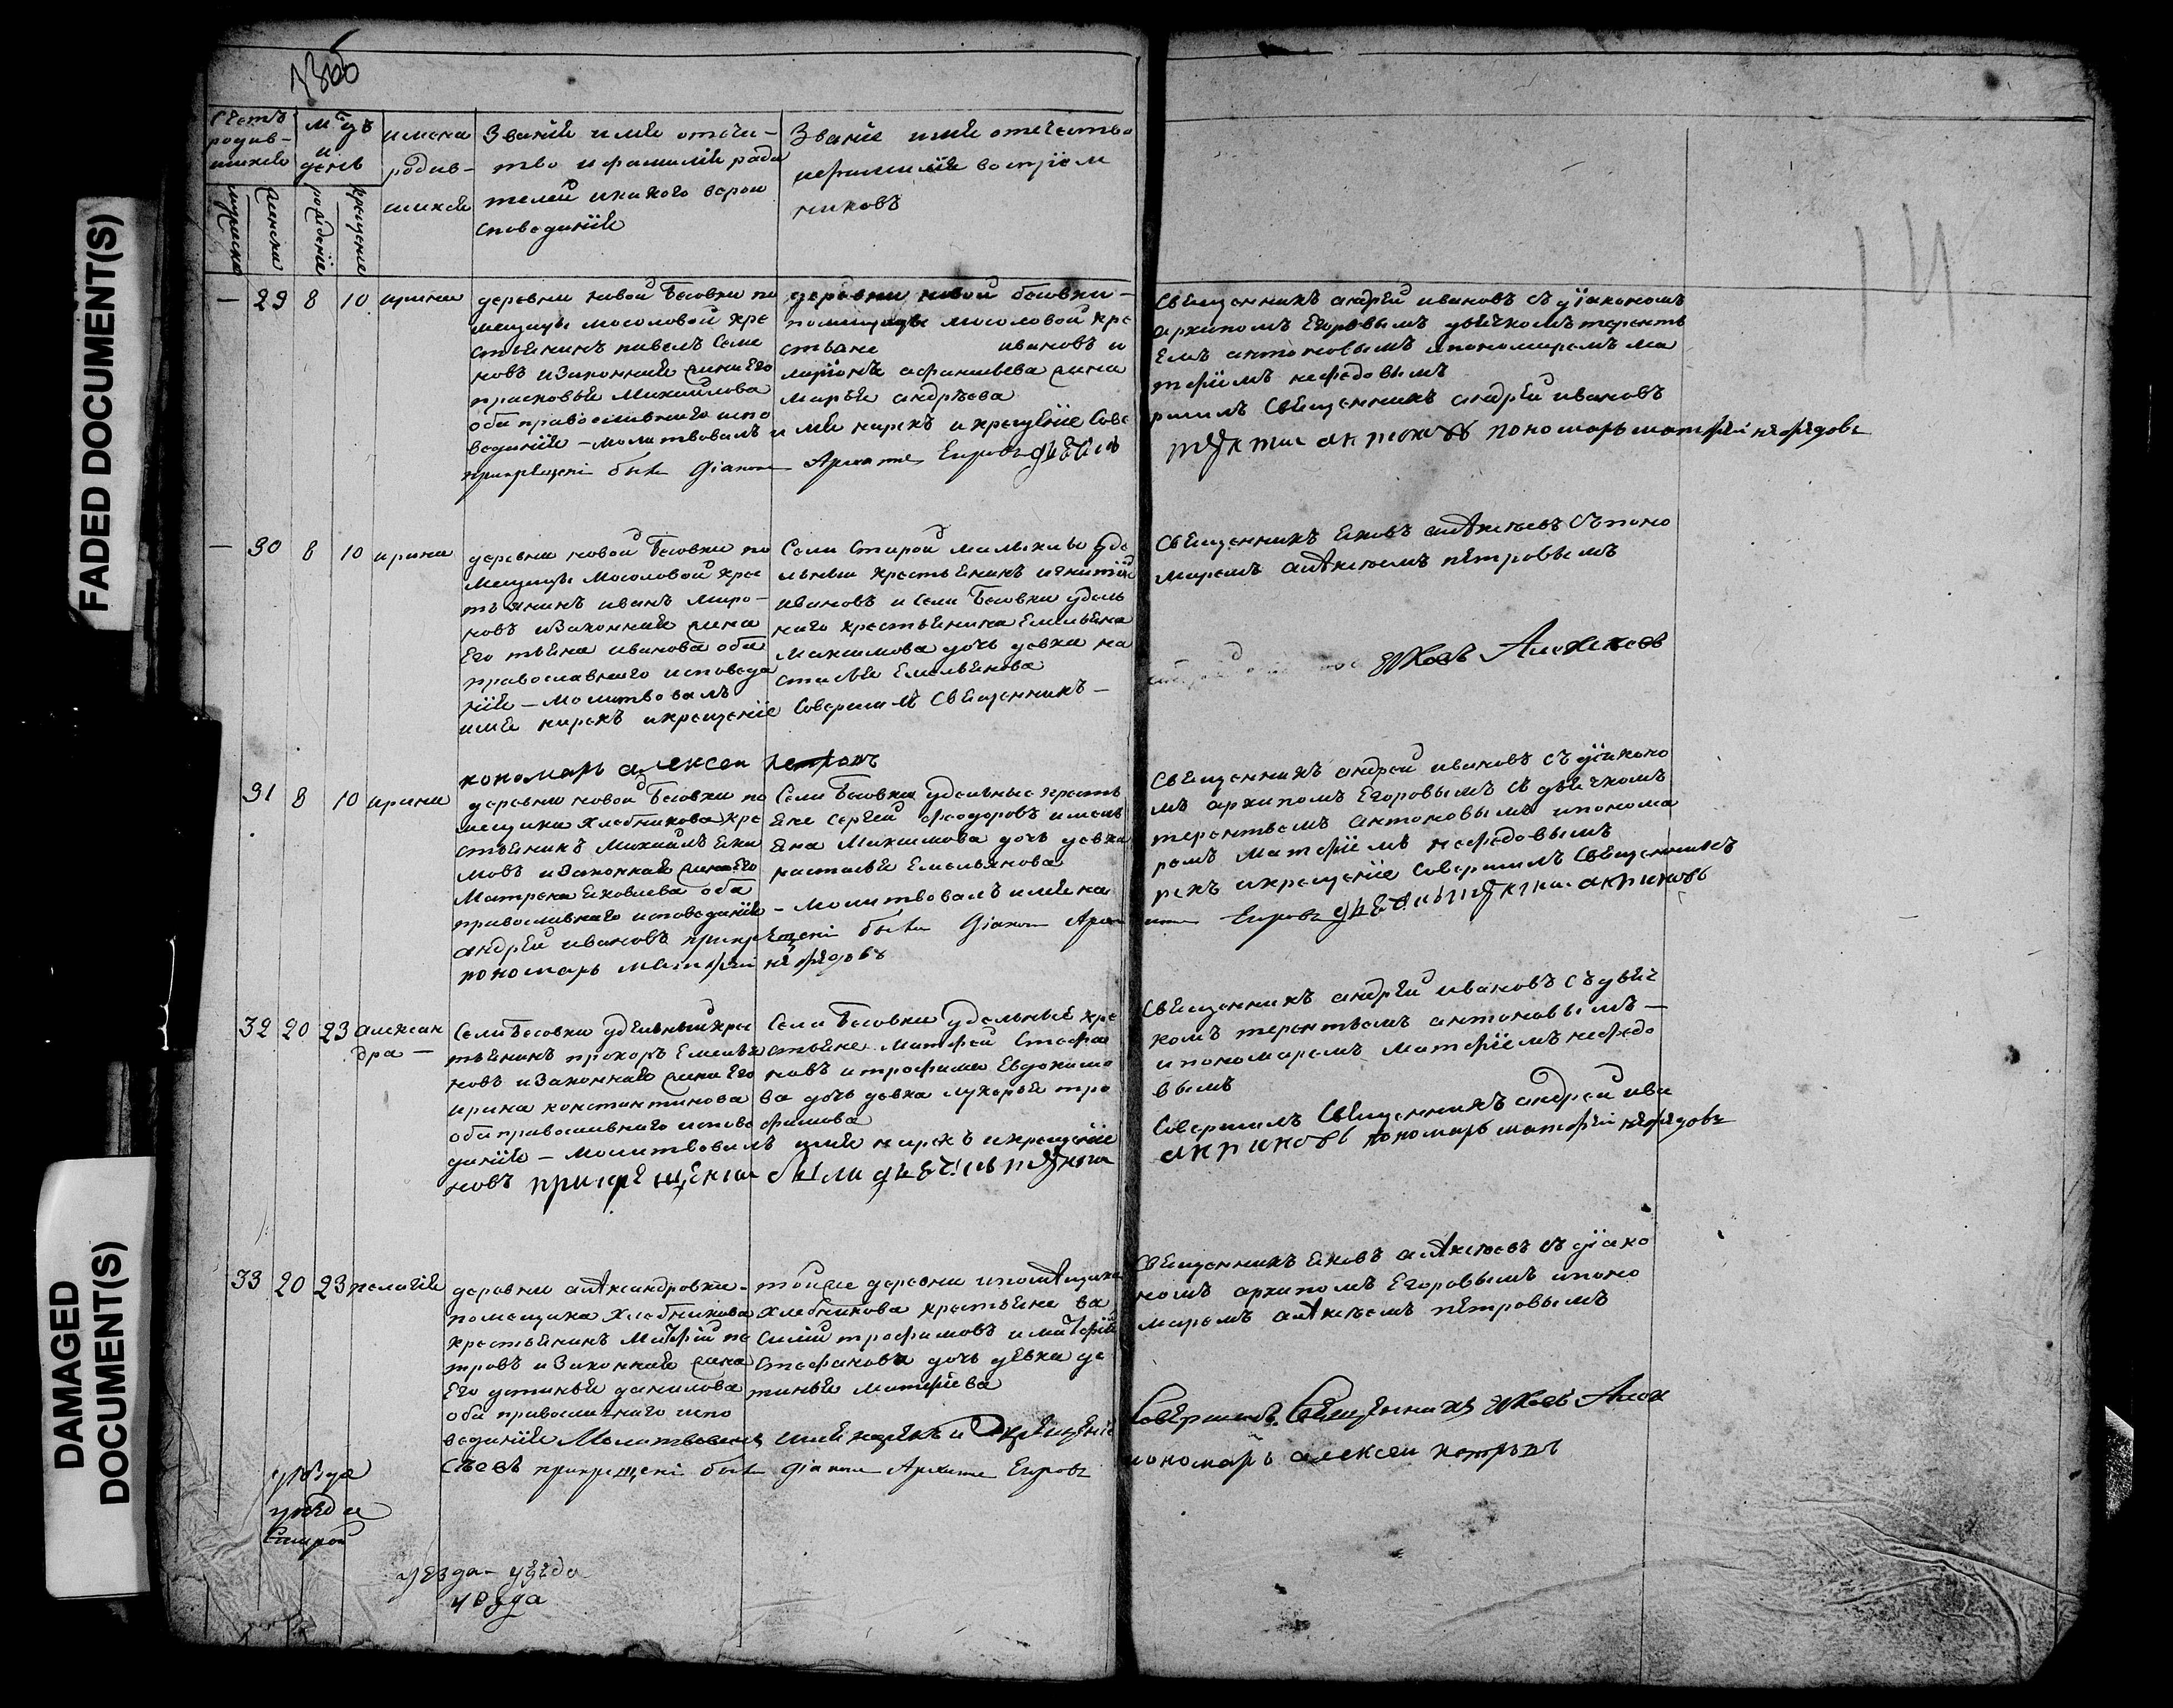 FADED DOCUMENT(S)
DAMAGED DOCUMENT(S)
14
Счетъ родив-шихся
мѣцъ и день
имена родив-шихся
мужеска
женска
рожденіе
крещеніе
Званіе имя отече-
ство и фамилія роди
телей и какого верои
споведанія
Званіе имя отечество
и фамилія воспріем
никовъ
— 29 8 10 ирина
деревни новой Бесовки по
мещицы мосоловой кре
стьянинъ павелъ Семе
новъ и законная жена Его
прасковья Михайлова
оба православнаго испо
веданія — молитвовалъ и
прикрещеніи были Діаконъ
деревни новой бесовки —
помещицы мосоловой кре
стьяне ивановъ и
афанасьева жена
марья андрѣева
имя нарекъ и крещеніе Сове
Архипъ Егоровъ дьячекъ
Священникъ андрей ивановъ съ діакономъ
архипомъ Егоровымъ дьячкомъ теренть
Емъ антоновымъ и пономаремъ ма
тфіемъ нефедовымъ
ршилъ Священникъ андрей ивановъ
пономарь матфей нефедовъ
— 30 8 10 ирина
деревни новой Бесовки по
мещицы Мосоловой крес
тьянинъ иванъ миро-
новъ и законная жена
Его татьяна иванова оба
православнаго исповеда
нія — молитвовалъ
имя нарекъ и крещеніе
пономарь алексеи петровъ
Села Старой уде
льный крестьянинъ игнатій
ивановъ и села Бесовки удель
наго крестьянина Емельяна
Максимова дочь девка на
стасья Емельянова
Совершилъ Священникъ —
Священникъ яковъ алексѣевъ съ поно
маремъ алексѣемъ петровымъ
яковъ Алексѣевъ
31 8 10 ирина
деревни новой Бесовки по
мещика Хлебникова кре
стьянинъ Михайлъ
мовъ и законная жена Его
Матрена яковлева оба
православнаго исповеданія
андрей ивановъ прикрещеніи были Діаконъ Архи
пономарь матфей нефедовъ
Села Бесовки удельные кресть
яне сергей феодоровъ и емель
яна Максимова дочь девка
настасья Емельянова
— молитвовалъ имя на
Священникъ андрей ивановъ съ діаконо
мъ архипомъ Егоровымъ съ дьячкомъ
терентьемъ антоновымъ и понома
ремъ Матфіемъ нефедовымъ
рекъ и крещеніе Совершилъ Священникъ
Егоровъ дьячекъ
32 20 23 алексан
дра —
Села Бесовки удельный крес
тьянинъ прохоръ Емелья
новъ и законная жена Его
ирина константинова
оба православнаго испове
данія — молитвовалъ имя нарекъ и крещеніе
новъ прикрещеніи были дьячекъ
Села Бесовки удельные кре
стьяне Матфей Стефа
новъ и трофима Евдокимо
ва дочь девка лукерья тро
фимова
Священникъ андрей ивановъ съ дьяч
комъ терентьемъ антоновымъ —
и пономаремъ Матфіемъ нефедо
вымъ
Совершилъ Священникъ андрей ива
антоновъ пономарь матфей нефедовъ
33 20 23 пелагія
деревни александровки
помещика Хлебникова
крестьянинъ Матфій пе
тровъ и законная жена
Его устинья данилова
оба православнаго испо
веданія Молитвовалъ имя нарекъ и крещеніе
сѣевъ прикрещеніи были діаконъ Архипъ Егоровъ
тойже деревни и помещика
Хлебникова крестьяне ва
силій трофимовъ и матфія
Стефанова дочь девка ус
тинья матфіева
Священникъ яковъ алексѣевъ съ діако
номъ архипомъ Егоровымъ и поно
маремъ алексѣемъ петровымъ
Совершилъ Священникъ яковъ Алек
пономарь алексеи петровъ
уѣзда
уезда